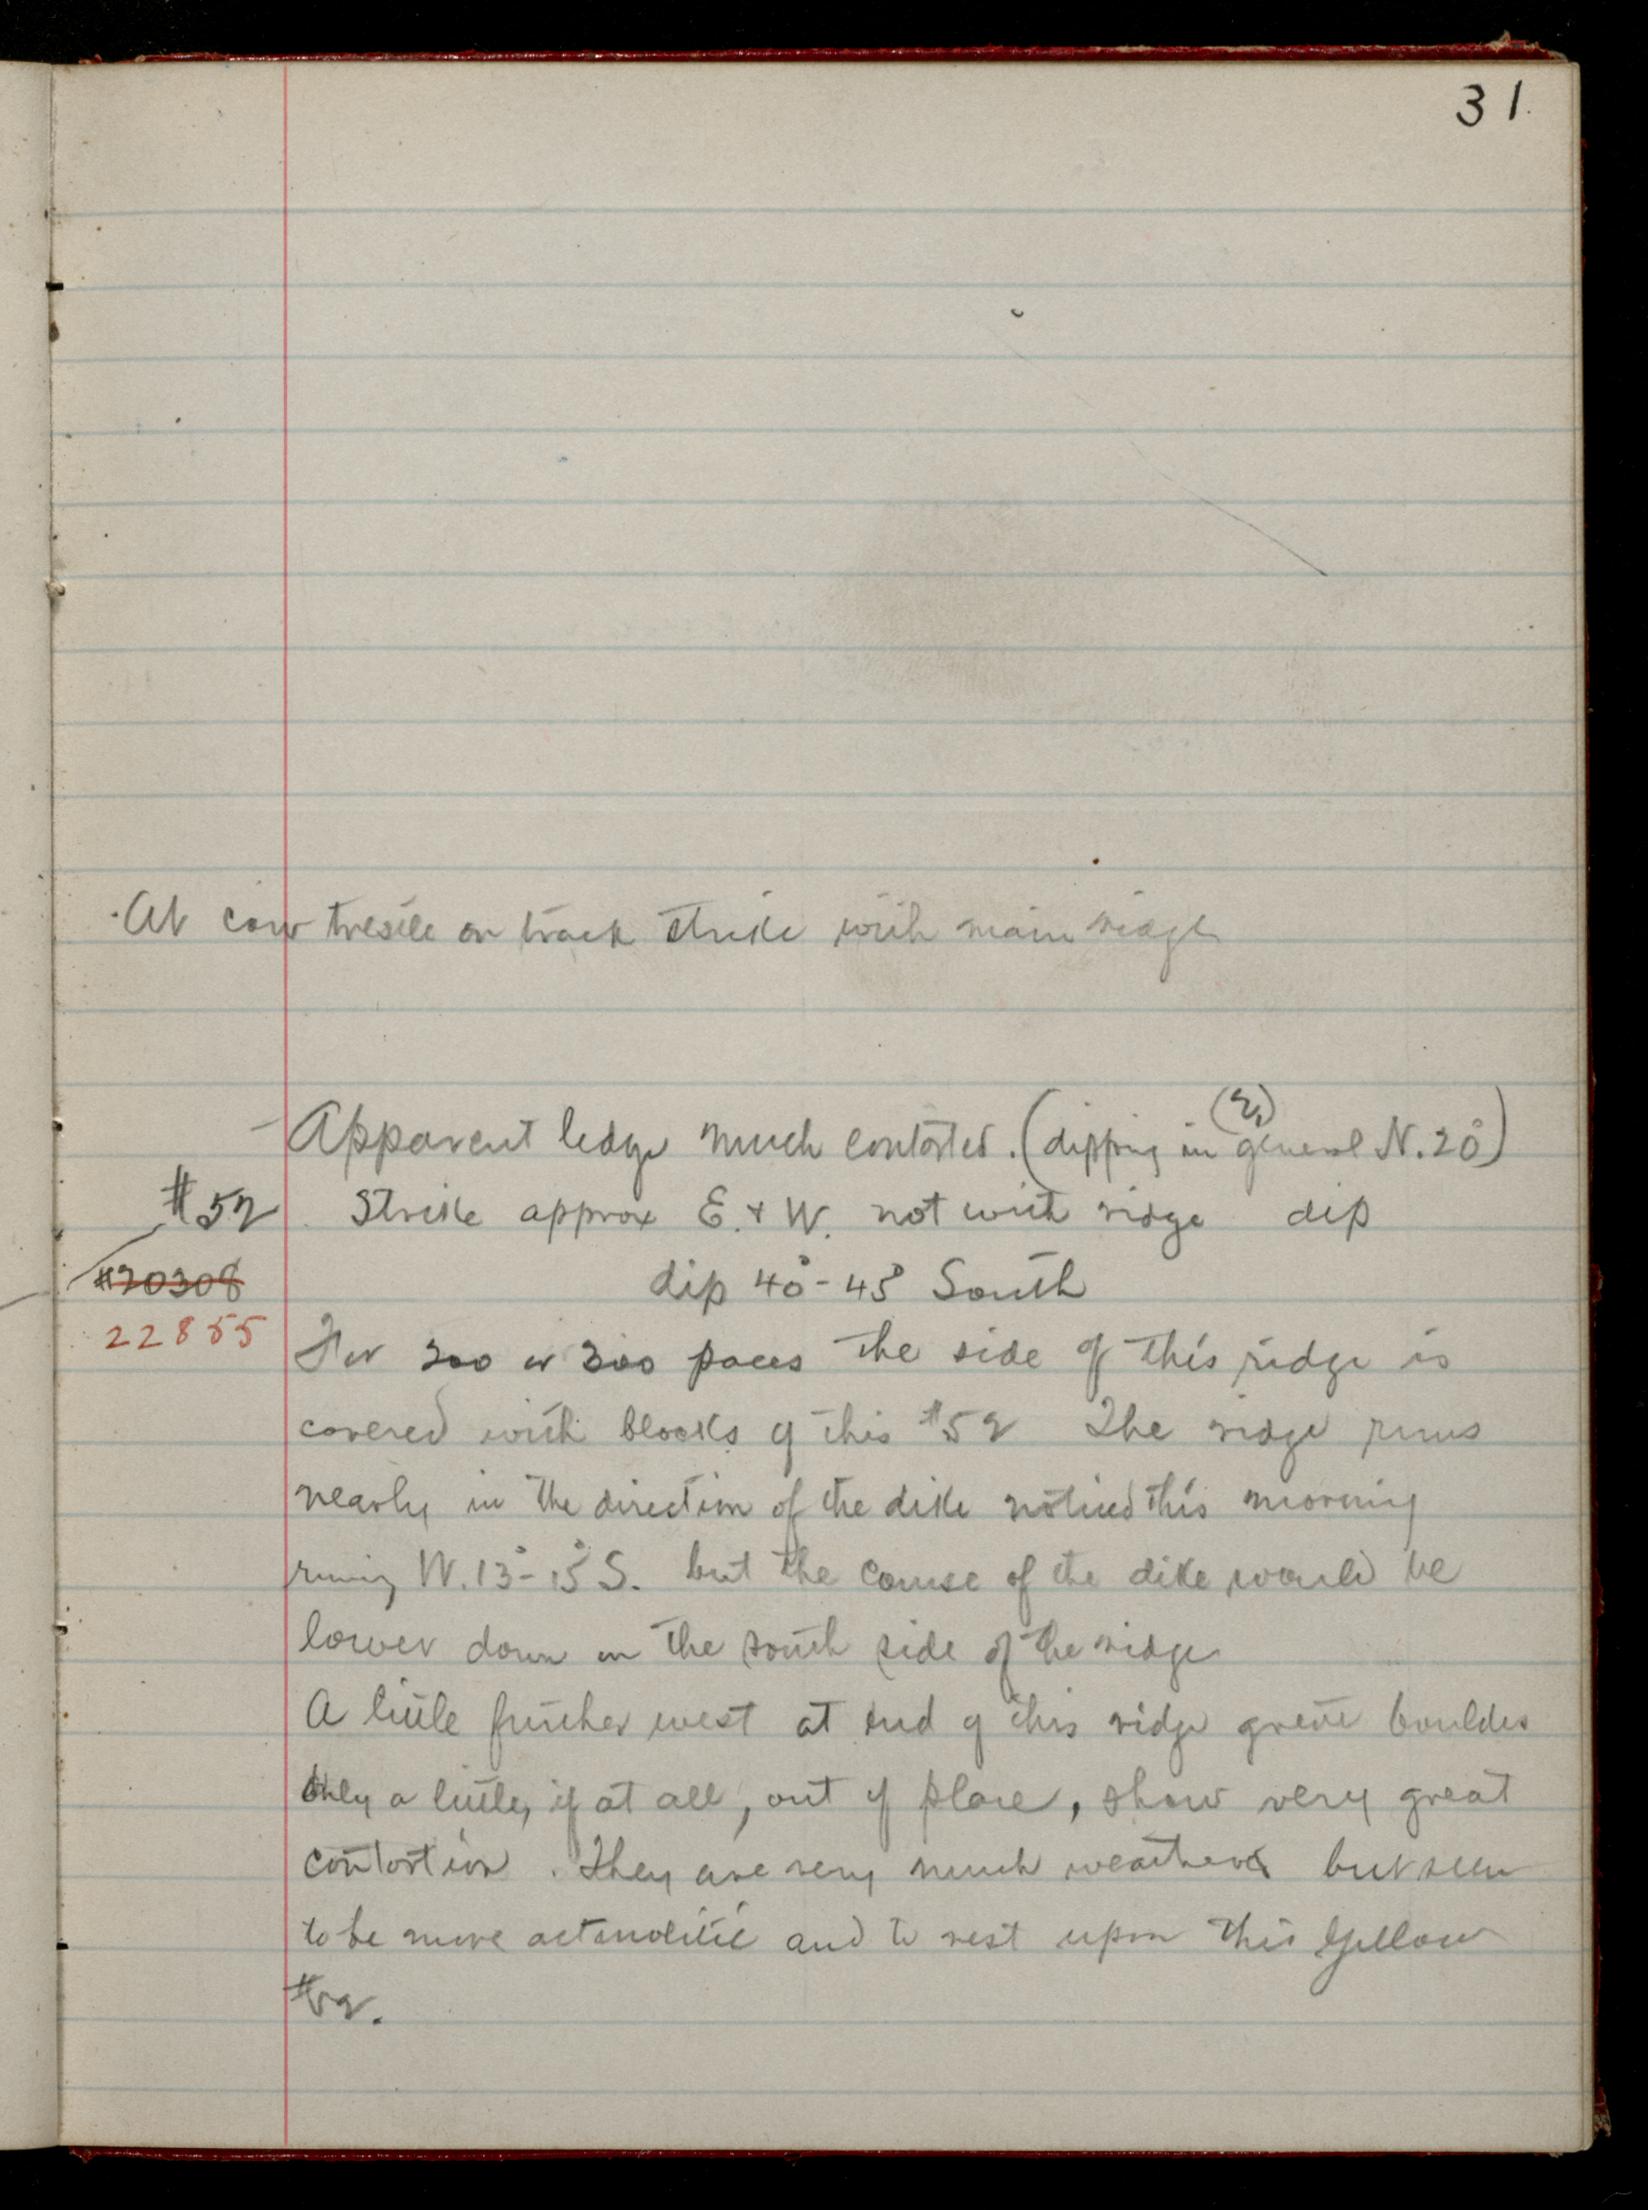 31.
At cow trestle on track strike with main ridge
Apparent ledge much contorted. (dipping in general N. 20°)
(?)
#52 Strike approx E. & W. not with ridge dip
#20308 dip 40°-45° South
22855
For 200 or 300 paces the side of this ridge is
covered with blocks of this #52 The ridge runs
nearly in the direction of the dike noticed this morning
runing W. 13°-15° S. but the course of the dike would be
lower down on the south side of the ridge
A little further west at end of this ridge great boulders
only a little, if at all, out of place, show very great
contortion. They are very much weathered but seem
to be more actinolitic and to rest upon this yellow
#52.